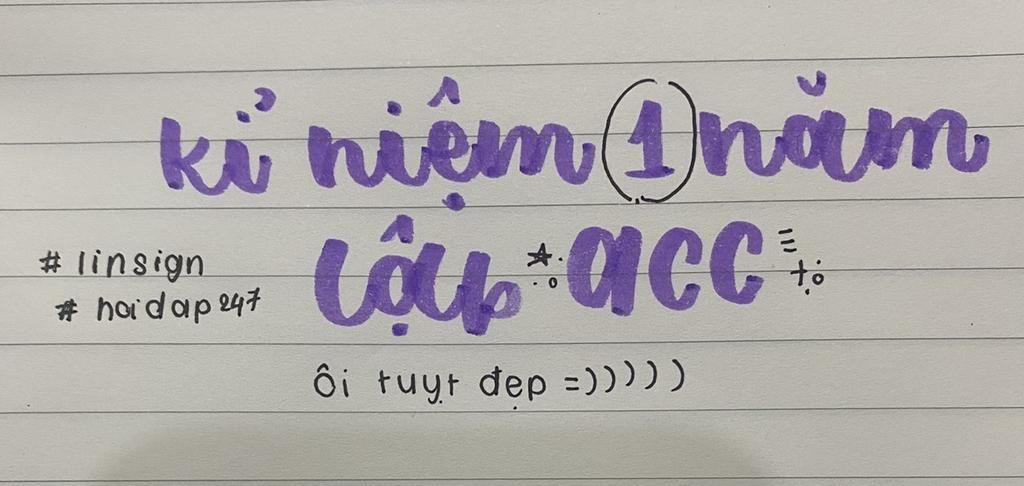 kỉ niệm 1 năm
lập acc
# linsign
# hoidap247
ôi tuyt đẹp =)))))